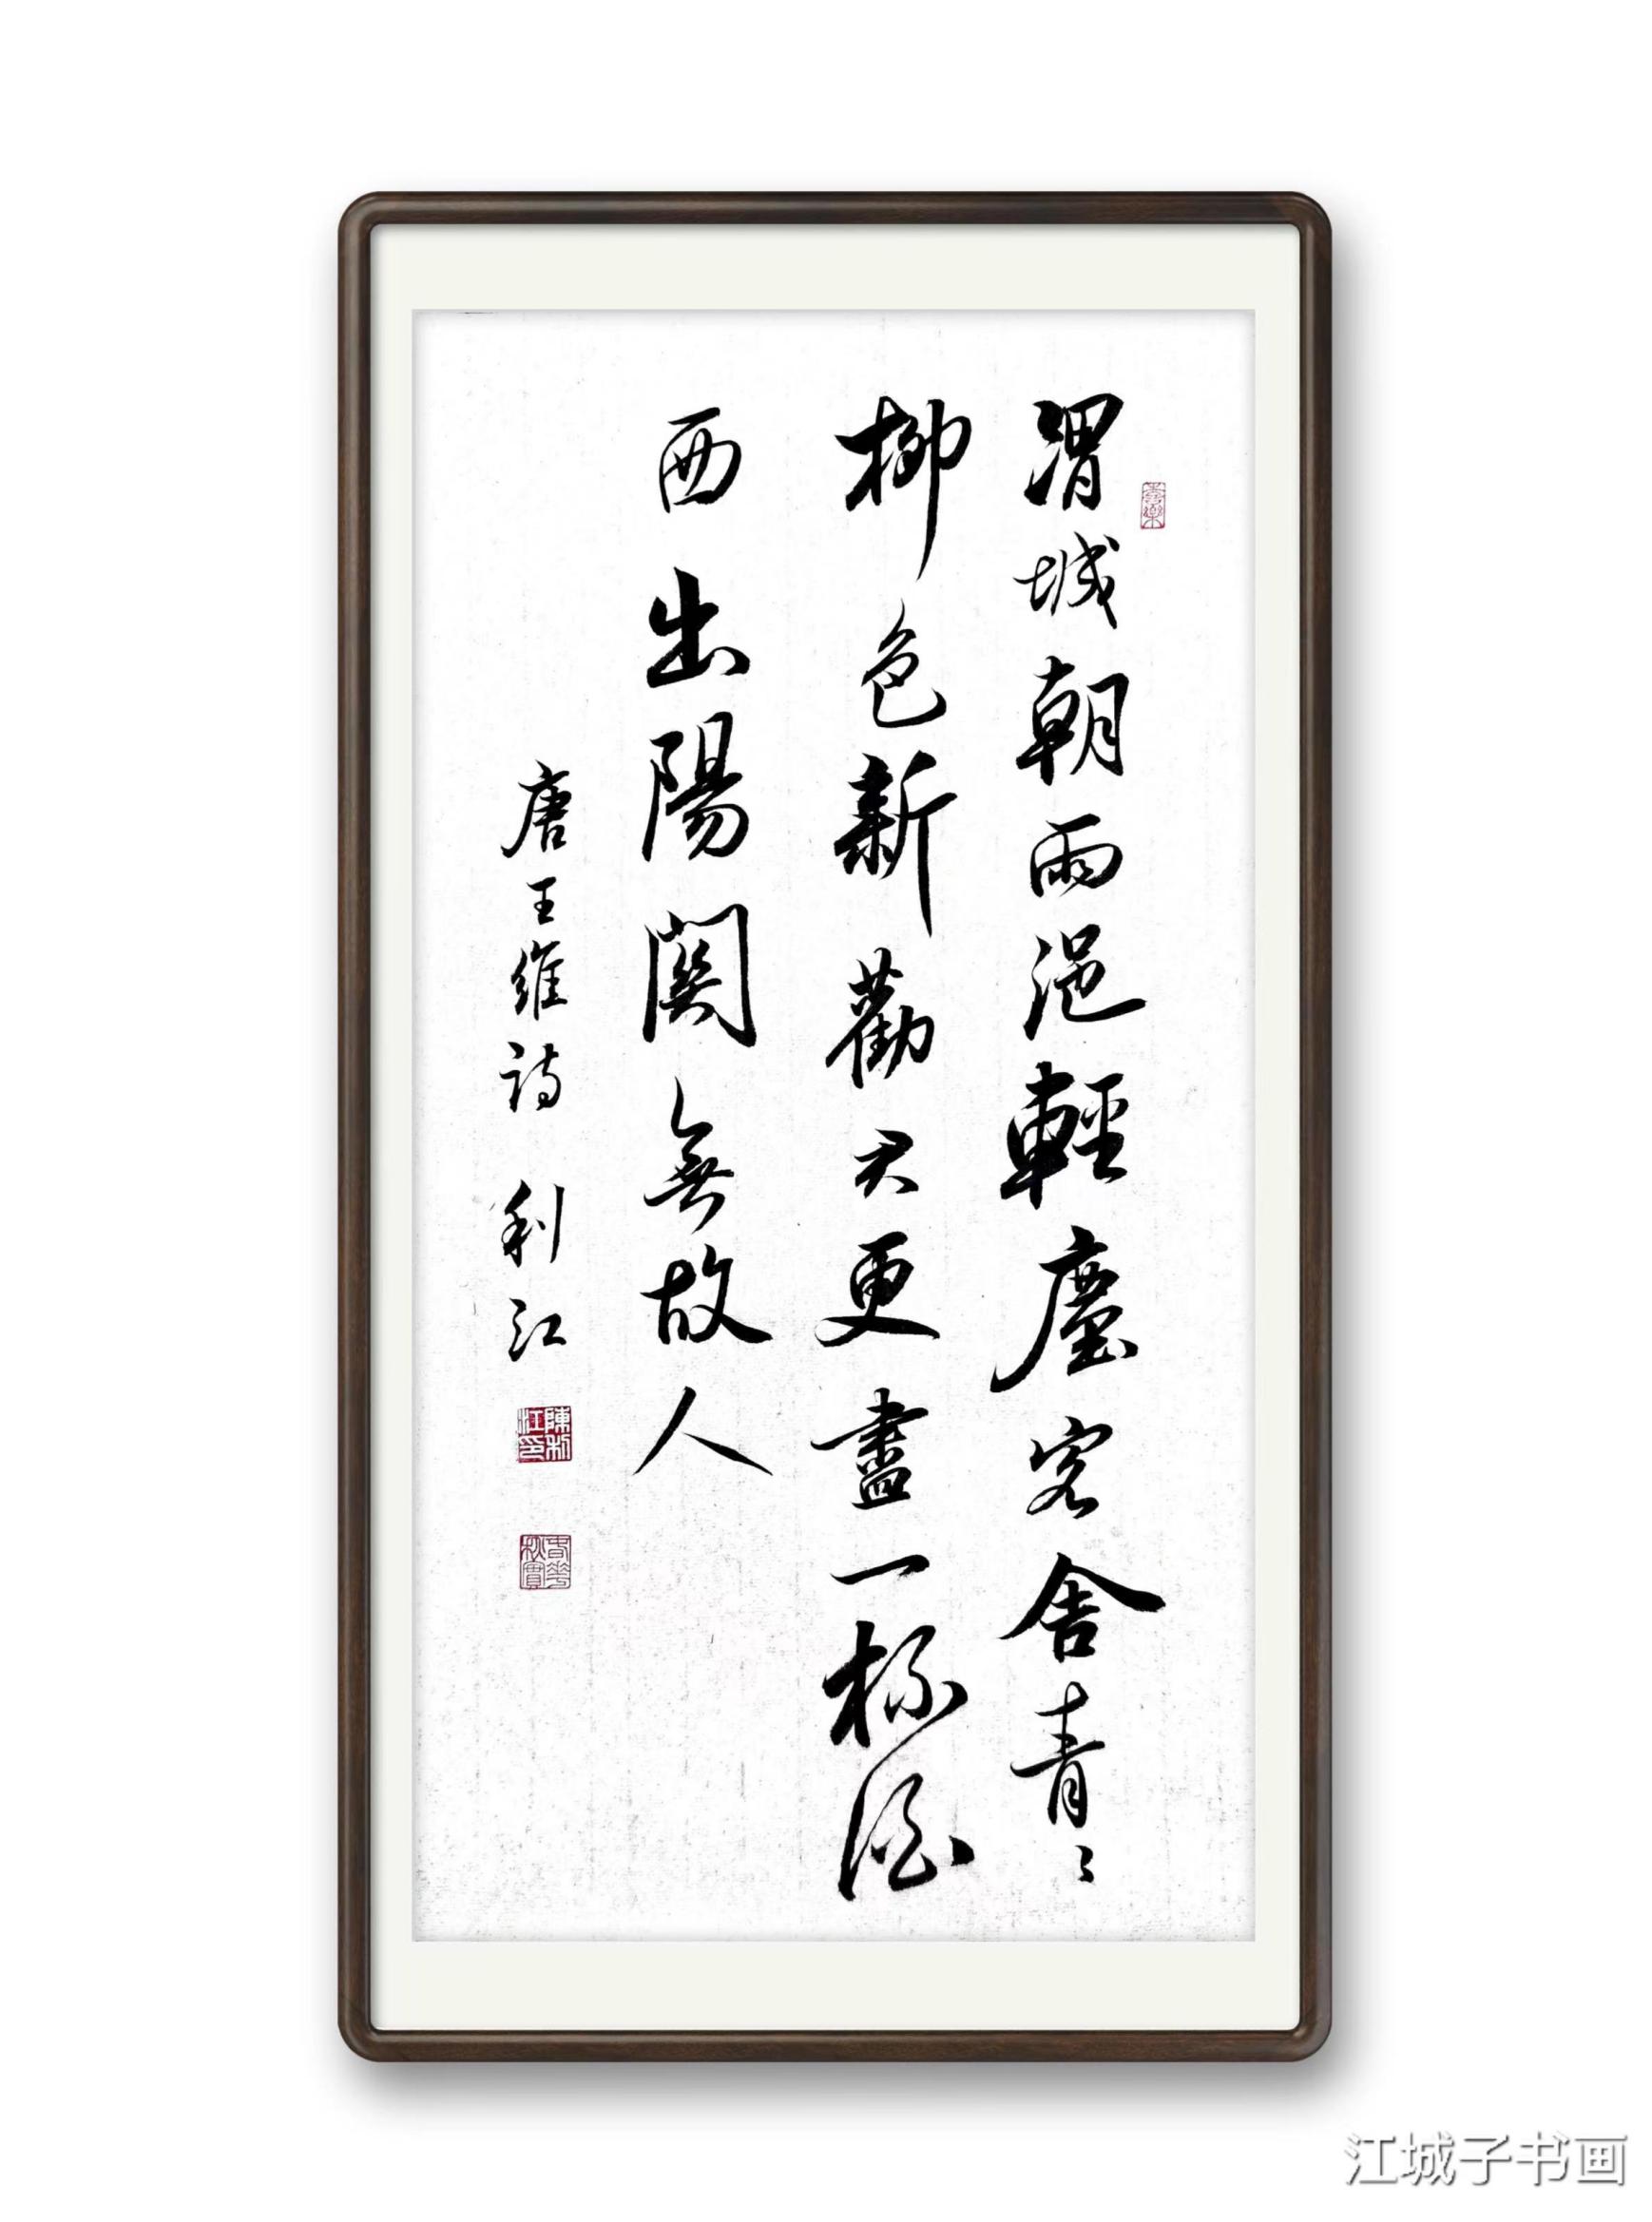 渭城朝雨浥輕塵客舍青〻
柳色新勸君更盡一杯酒
西出陽關無故人
唐王維詩 利江
陳利江印
春華秋實
江城子书画